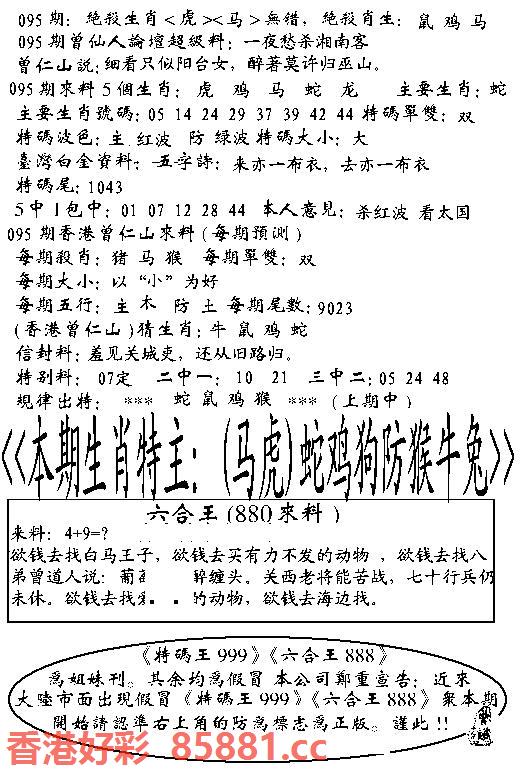 095期：絶殺生肖<虎><马>無错，絶殺肖生：鼠 鸡 马
095期曾仙人論壇超級料：一夜愁杀湘南客
曾仁山説：细看只似阳台女，醉著莫许归巫山。
095期來料5個生肖：虎 鸡 马 蛇 龙 主要生肖：蛇
主要生肖號碼：05 14 24 29 37 39 42 44 特碼單雙：双
特碼波色：主 红波 防 绿波 特碼大小：大
臺灣白金資料：五字詩：来亦一布衣，去亦一布衣
特碼尾：1043
5中1包中：01 07 12 28 44 本人意見：杀红波 看太国
095期香港曾仁山來料(每期預测)
每期殺肖：猪 马 猴 每期單雙：双
每期大小：以“小”为好
每期五行：主 木 防 土 每期尾数：9023
(香港曾仁山)猜生肖：牛 鼠 鸡 蛇
信封料：羞见关城吏，还从旧路归。
特别料：07定 二中一：10 21 三中二：05 24 48
規律出特：*** 蛇 鼠 鸡 猴 *** (上期中)
《本期生肖特主：(马虎)蛇鸡狗防猴牛兔》
六合王(880來料)
来料：4+9=?
欲钱去找白马王子，欲钱去买有力不发的动物，欲钱去找八
弟曾道人说：葡 醉缠头。关西老将能苦战，七十行兵仍
未休。欲钱去找 的动物，欲钱去海边找。
《特碼王999》《六合王888》
爲姐妹刊。其余均爲假冒 本公司鄭重宣告：近來
大陸市面出現假冒《特碼王999》《六合王888》衆本期
開始請認準右上角的防爲標志爲正版。謹此!!
香港好彩 85881.cc